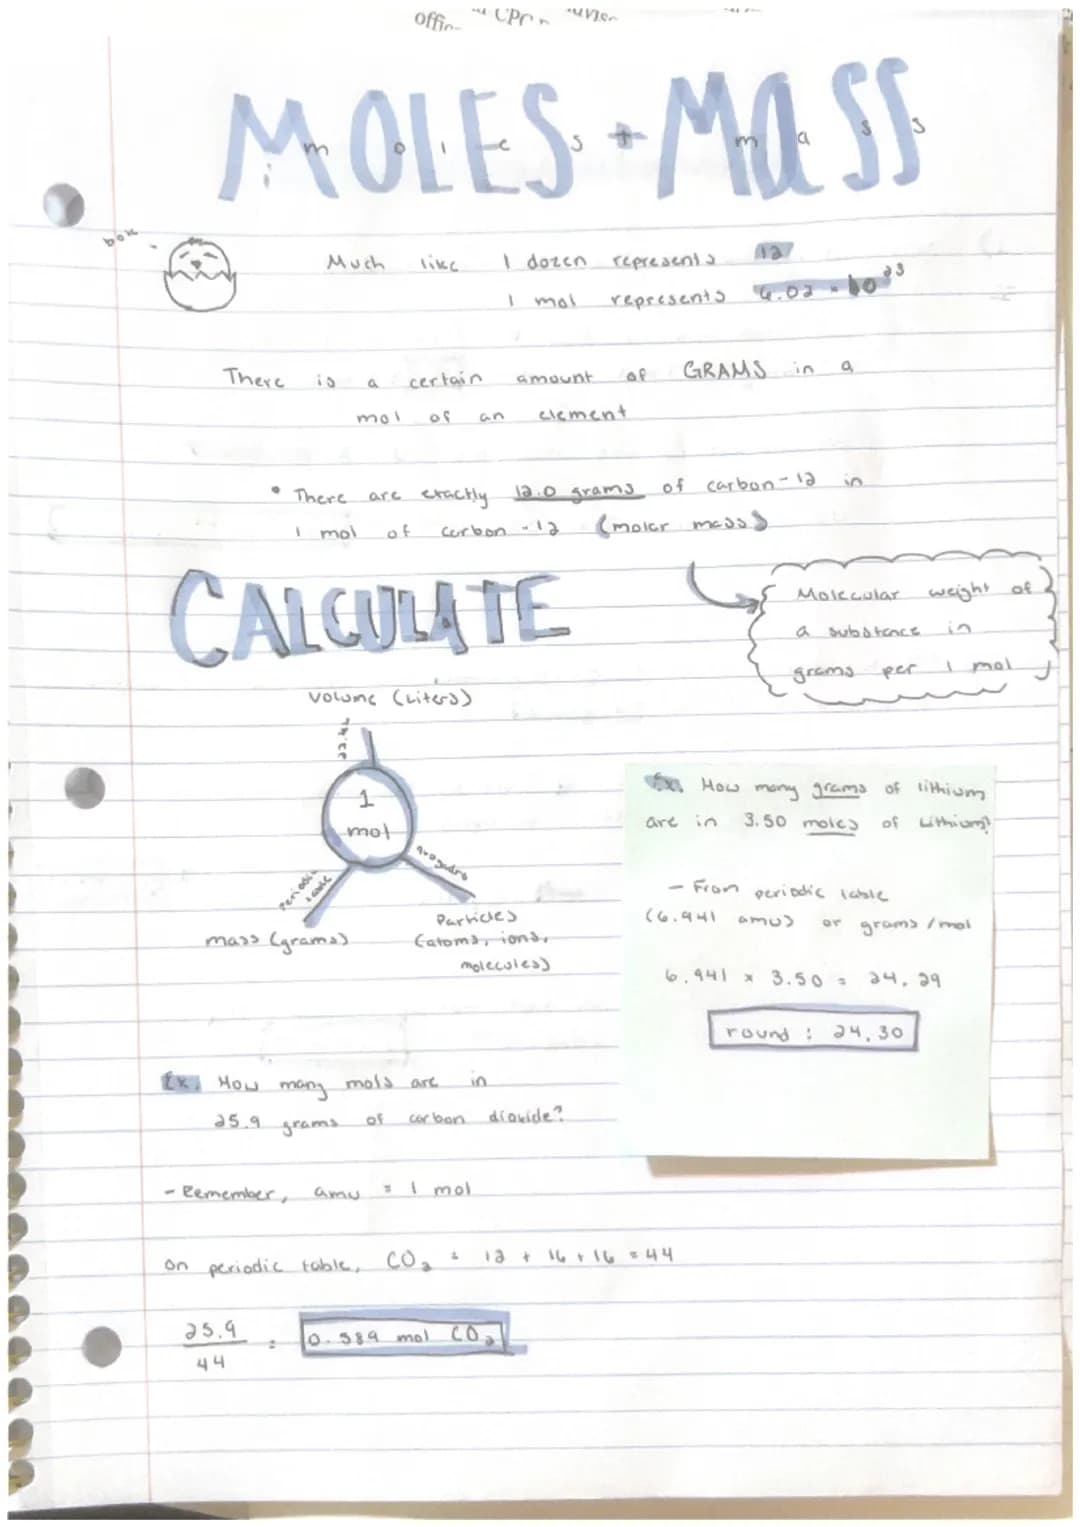 MOLES + MASS
moles mass
Much like 1 dozen represents 12
1 mol represents 6.02 × 10²³
There is a certain amount of GRAMS in a
mol of an element
• There are exactly 12.0 grams of carbon-12 in
1 mol of carbon-12 (molar mass)
Molecular weight of
a substance in
grams per 1 mol
CALCULATE
Volume (Liters)
22.4L
1
mol
periodic
table
avogadro
mass (grams)
Particles
(atoms, ions,
molecules)
Ex. How many grams of lithium
are in 3.50 moles of Lithium?
- From periodic table
(6.941 amu) or grams/mol
6.941 x 3.50 = 24.29
round: 24.30
Ex. How many mols are in
25.9 grams of carbon dioxide?
- Remember, amu = 1 mol
On periodic table, CO₂ = 12 + 16 + 16 = 44
25.9
44
= 0.589 mol CO₂